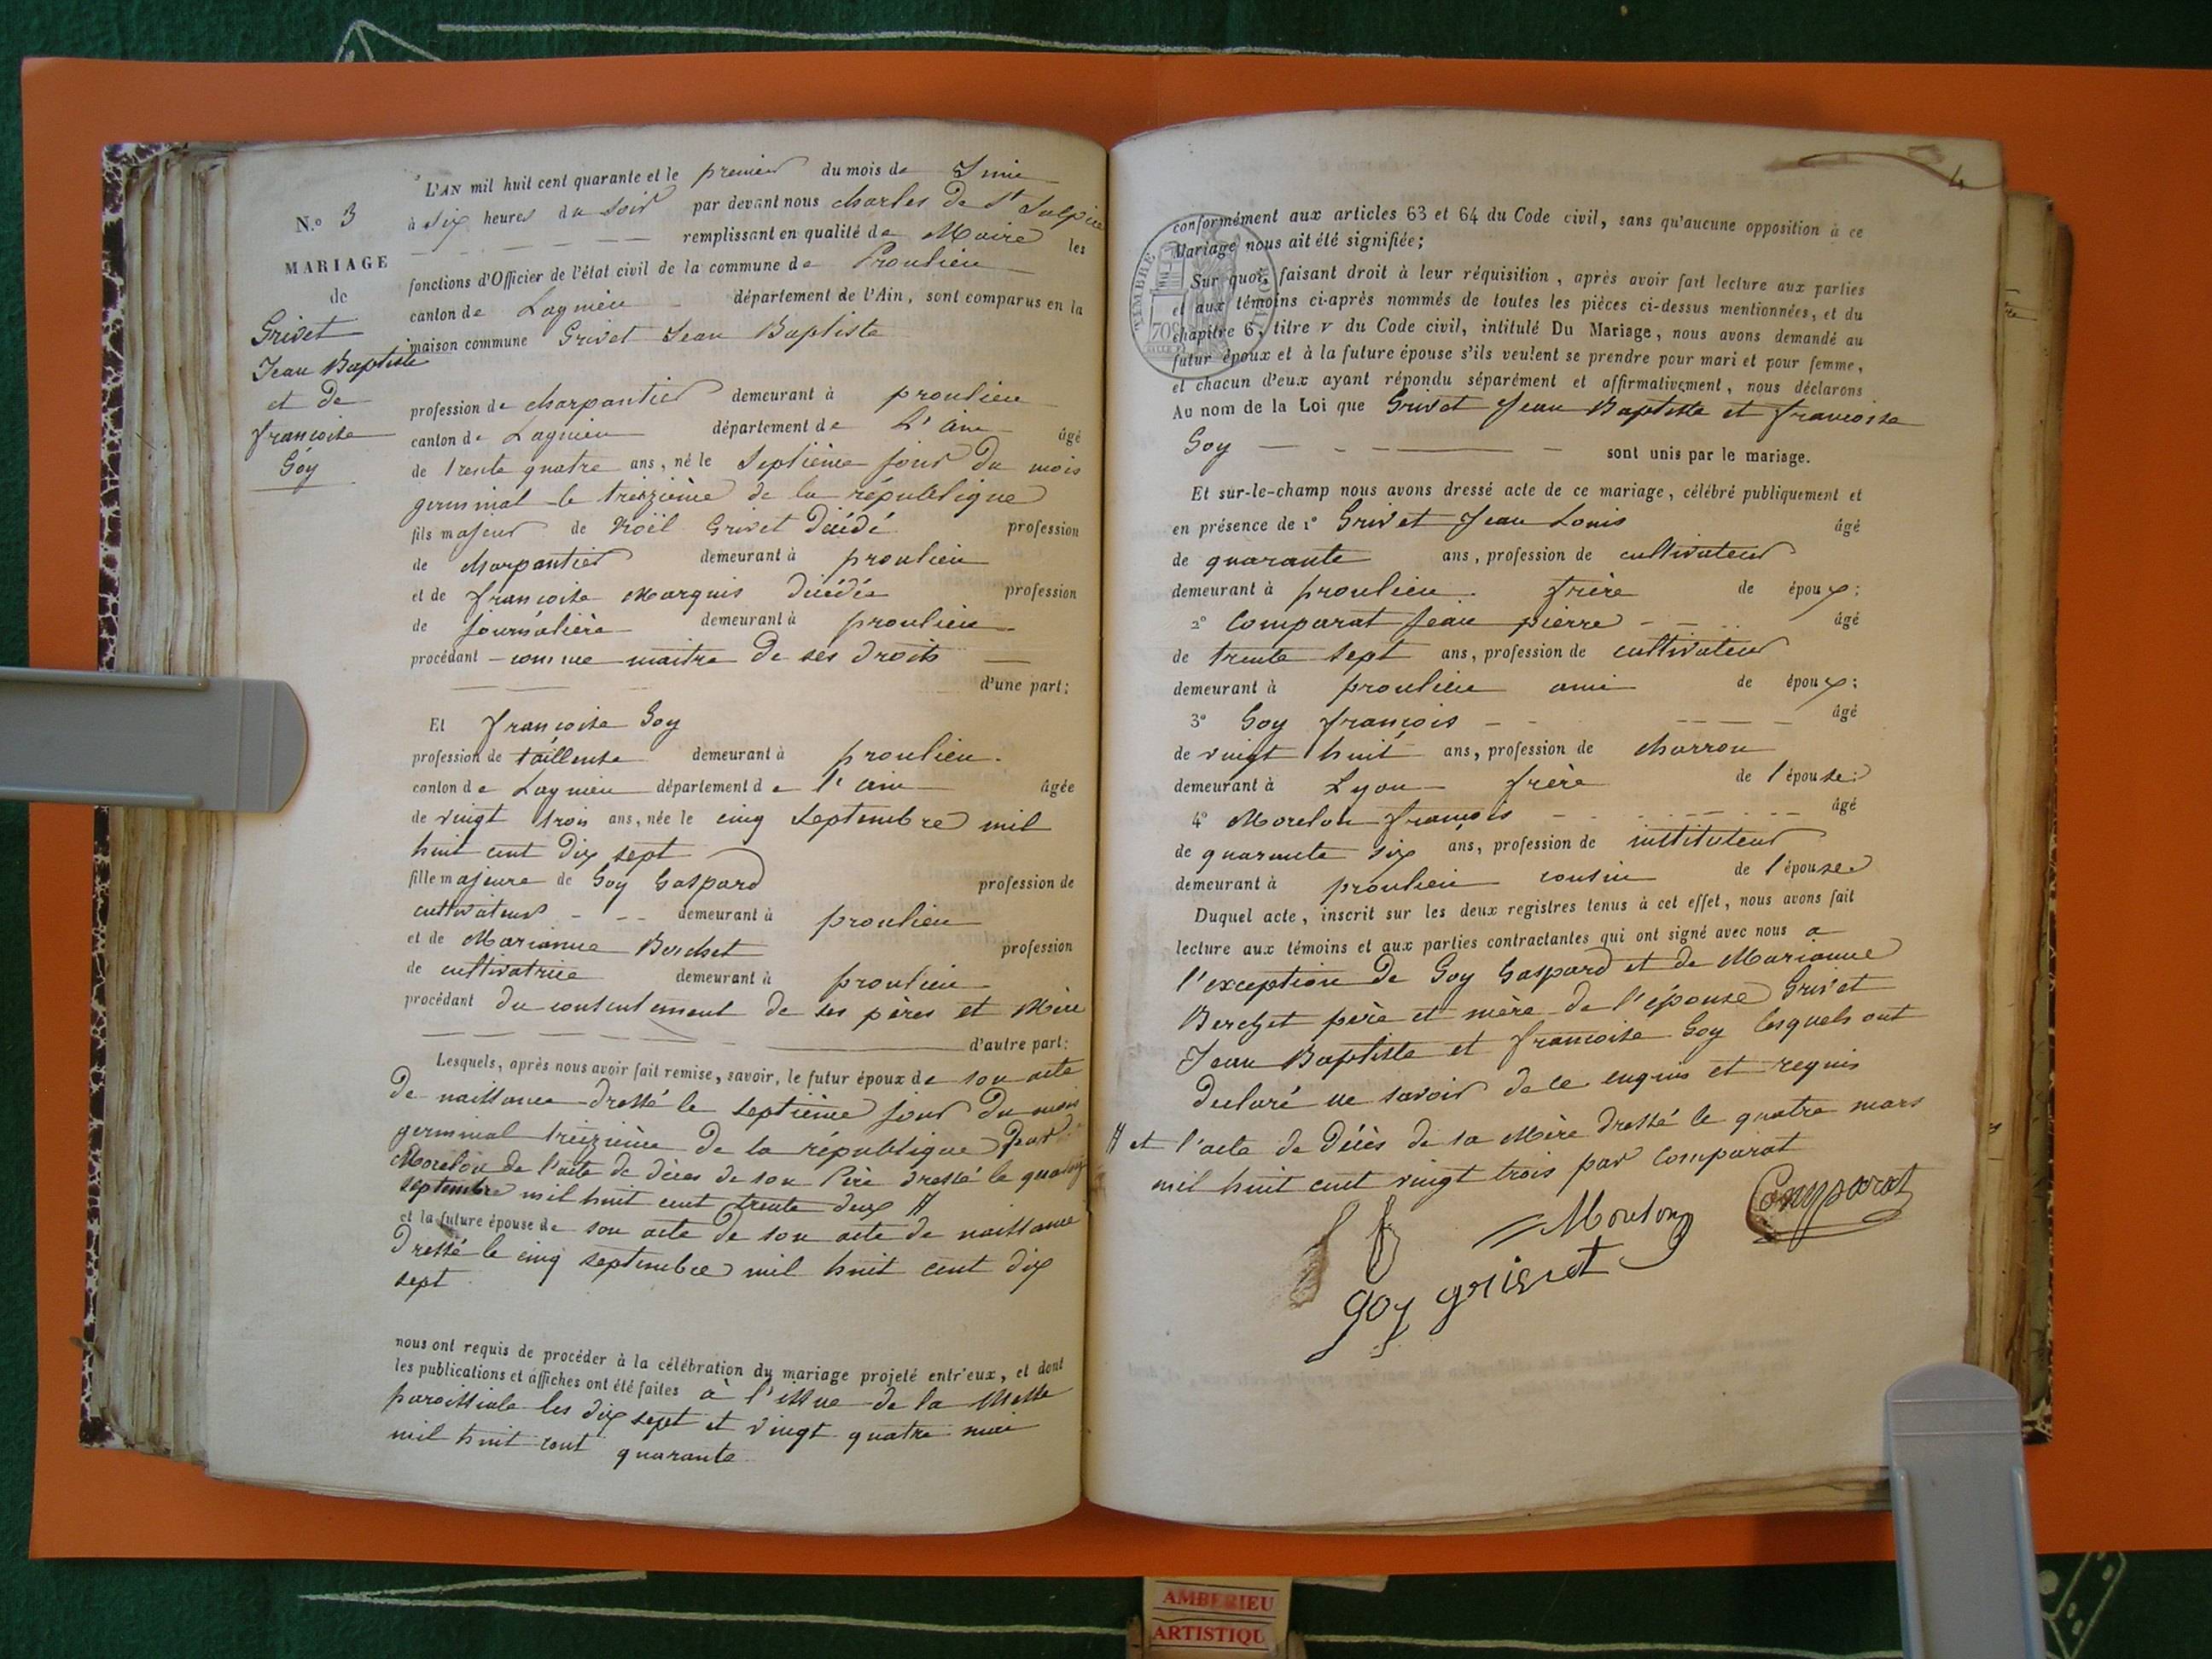 N.o 3
MARIAGE
de
Grivet
Jean Baptiste
et de
francoise
Goy
L'AN mil huit cent quarante et le premier du mois de Juin
à six heures du soir par devant nous charles De St Sulpice
remplissant en qualité de Maire les
fonctions d'Officier de l'état civil de la commune de Proulieu
canton de Lagnieu département de l'Ain, sont comparus en la
maison commune Grivet Jean Baptiste
profession de charpantier demeurant à proulieu
canton de Lagnieu département de L'ain âgé
de trente quatre ans, né le septième jour du mois
germinal le treizième de la république
fils majeur de Noël Grivet Décédé profession
de charpantier demeurant à proulieu
et de françoise Marquis Décédée profession
de journalière demeurant à proulieu
procédant comme maitre de ses droits
d'une part;
Et francoise Goy
profession de tailleuse demeurant à proulieu.
canton de Lagnieu département de l'ain âgée
de vingt trois ans, née le cinq septembre mil
huit cent dix sept
fille majeure de Goy Gaspard profession de
cultivateur demeurant à proulieu
et de Marianne Berchet profession
de cultivatrice demeurant à proulieu
procédant du consentement de ses pères et Mère
d'autre part:
Lesquels, après nous avoir fait remise, savoir, le futur époux de son acte
De naissance dressé le septième jour du mois
germinal treizième de la république par
Morelon de l'acte de dèces de son Père dressé le quatorze
septembre mil huit cent trente deux #
et la future épouse de son acte de son acte de naissance
Dressé le cinq septembre mil huit cent dix
sept
nous ont requis de procéder à la célébration du mariage projeté entr'eux, et dont
les publications et affiches ont été faites à l'issue de la Messe
paroissiale les dix sept et vingt quatre mai
mil huit cent quarante
4
TIMBRE
conformément aux articles 63 et 64 du Code civil, sans qu'aucune opposition à ce
Mariage nous ait été signifiée;
Sur quoi, faisant droit à leur réquisition, après avoir fait lecture aux parties
et aux témoins ci-après nommés de toutes les pièces ci-dessus mentionnées, et du
chapitre 6, titre v du Code civil, intitulé Du Mariage, nous avons demandé au
futur époux et à la future épouse s'ils veulent se prendre pour mari et pour femme,
et chacun d'eux ayant répondu séparément et affirmativement, nous déclarons
Au nom de la Loi que Grivet Jean Baptiste et francoise
Goy sont unis par le mariage.
Et sur-le-champ nous avons dressé acte de ce mariage, célébré publiquement et
en présence de 1o Grivet Jean Louis âgé
de quarante ans, profession de cultivateur
demeurant à proulieu frère de époux;
2o Comparat Jean pierre âgé
de trente sept ans, profession de cultivateur
demeurant à proulieu ami de époux;
3o Goy françois âgé
de vingt huit ans, profession de charron
demeurant à Lyon frère de l'épouse;
4o Morelon françois âgé
de quarante six ans, profession de instituteur
demeurant à proulieu cousin de l'épouse
Duquel acte, inscrit sur les deux registres tenus à cet effet, nous avons fait
lecture aux témoins et aux parties contractantes qui ont signé avec nous a
l'exception de Goy Gaspard et de Marianne
Berchet père et mère de l'épouse Grivet
Jean Baptiste et francoise Goy lesquels ont
Declaré ne savoir de ce enquis et requis
# et l'acte de Décès de sa Mère dressé le quatre mars
mil huit cent vingt trois par Comparat
Morelon Comparat
goy grivet
AMBERIEU
ARTISTIQU